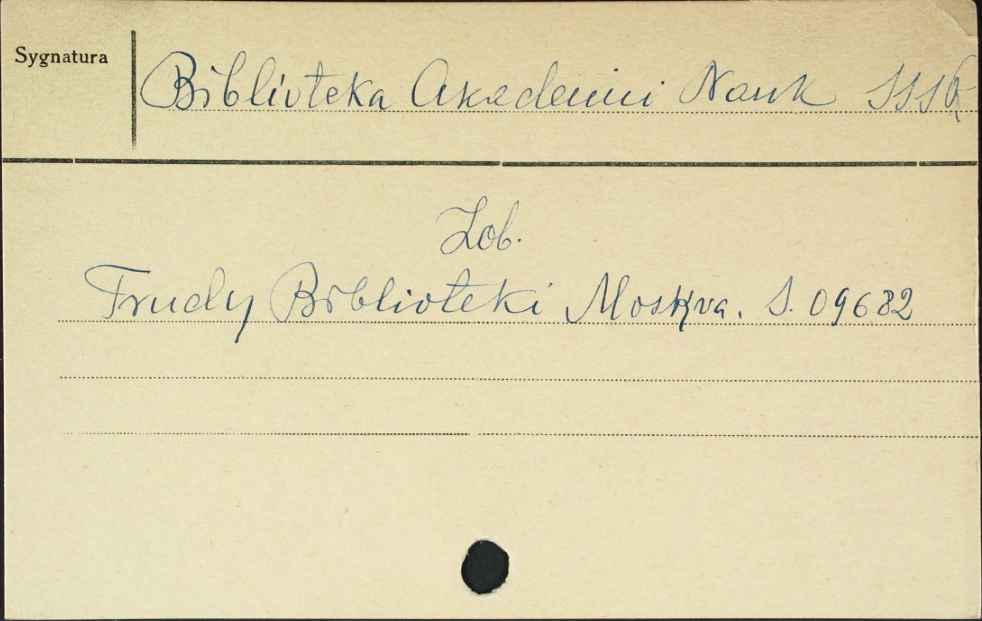 Sygnatura
Biblioteka Akademii Nauk SSSR
Zob.
Trudy Biblioteki Moskva. S. 09682